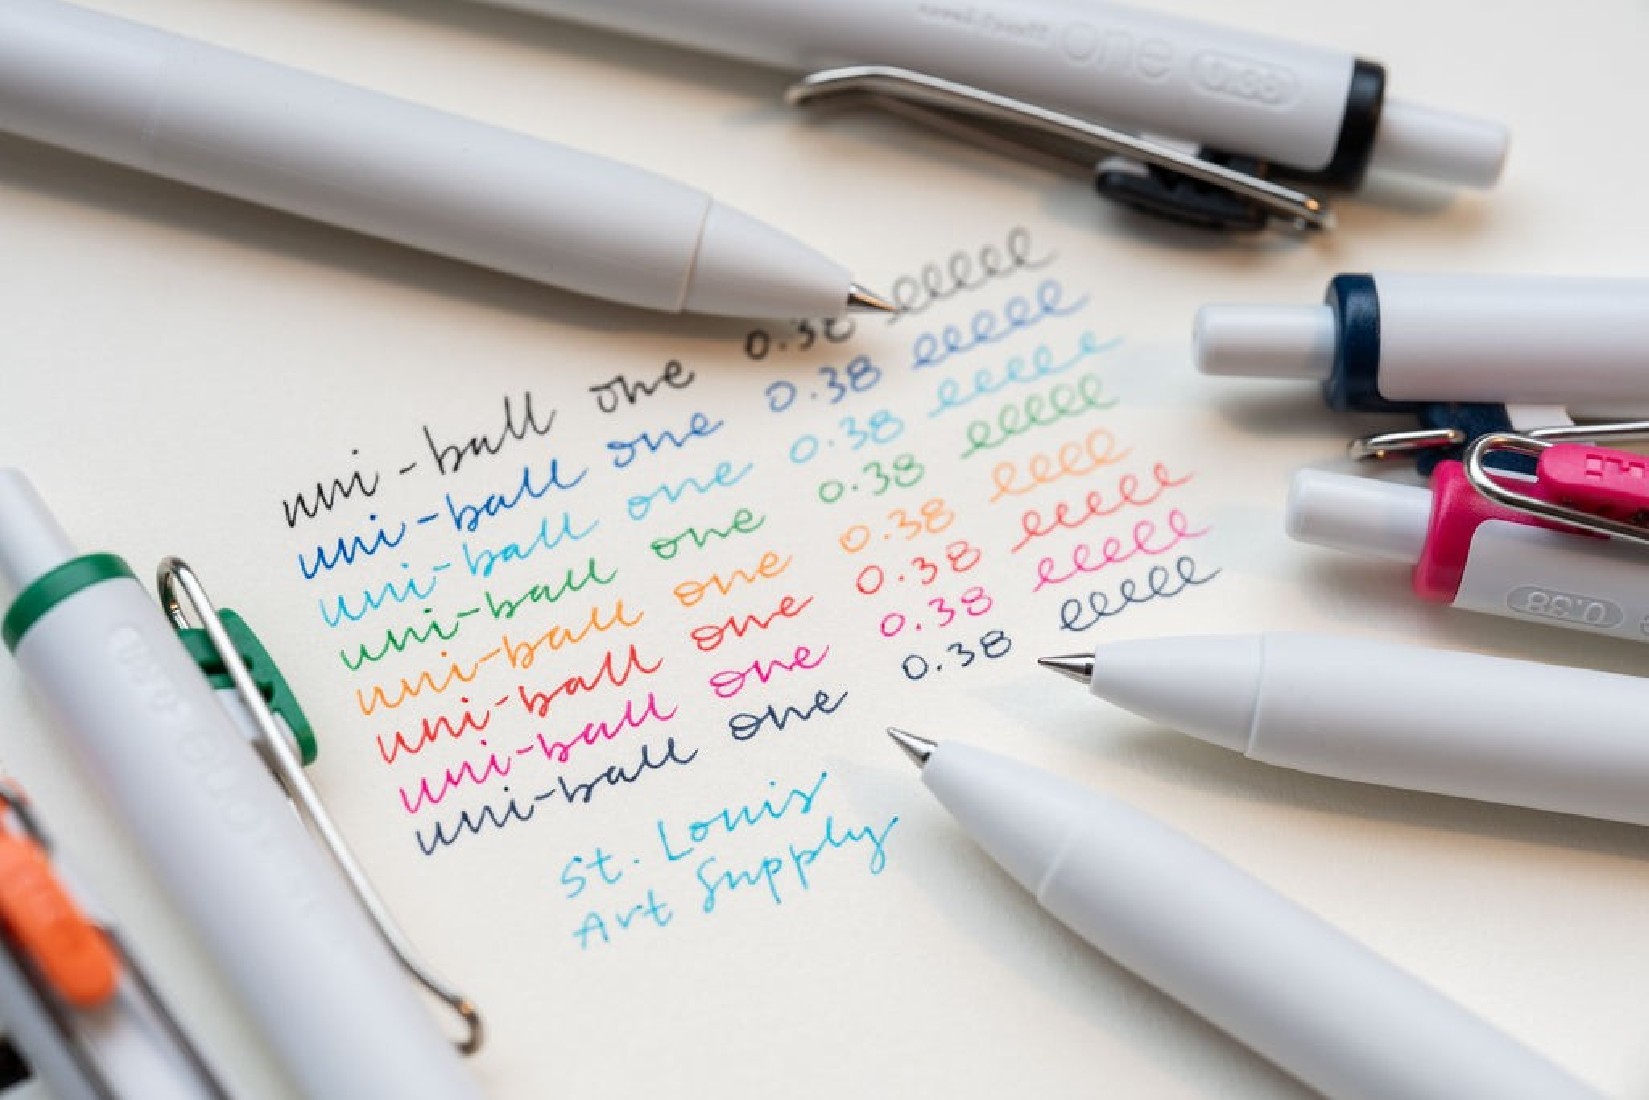 uni-ball one 0.38
uni-ball one 0.38 eeeee
uni-ball one 0.38 eeeee
uni-ball one 0.38 eeeee
uni-ball one 0.38 eeeee
uni-ball one 0.38 eeee
uni-ball one 0.38 eeeee
uni-ball one 0.38 eeeee
uni-ball one 0.38 eeeee
St. Louis
Art Supply
0.38